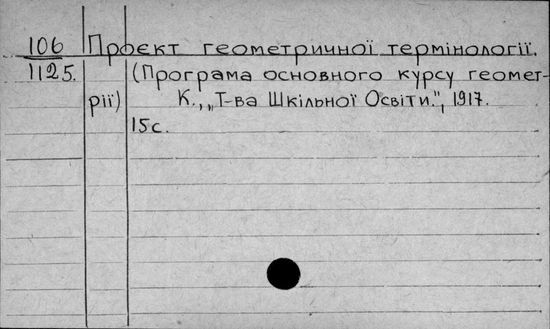 106 Проєкт геометричної термінології.
1125. (Програма основного курсу геомет-
рії) К., „Т-ва Шкільної Освіти.", 1917.
15с.